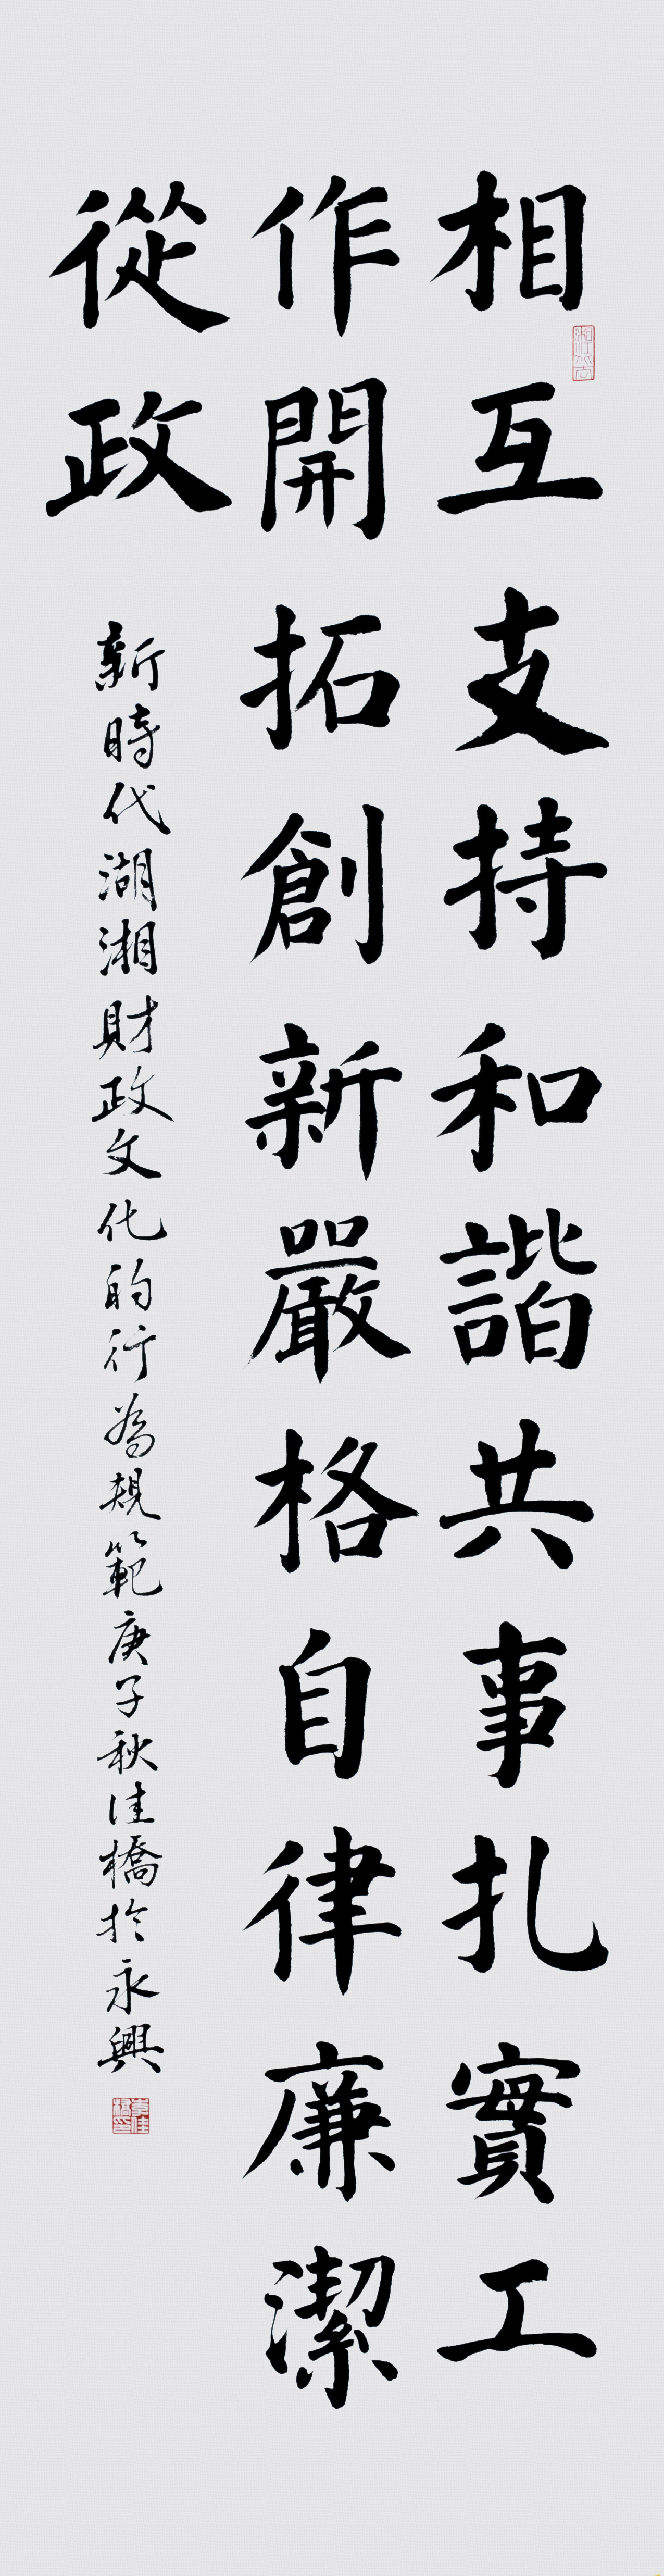 相互支持和諧共事扎實工
作開拓創新嚴格自律廉潔
從政
新時代湖湘財政文化的行為規範庚子秋佳橋於永興